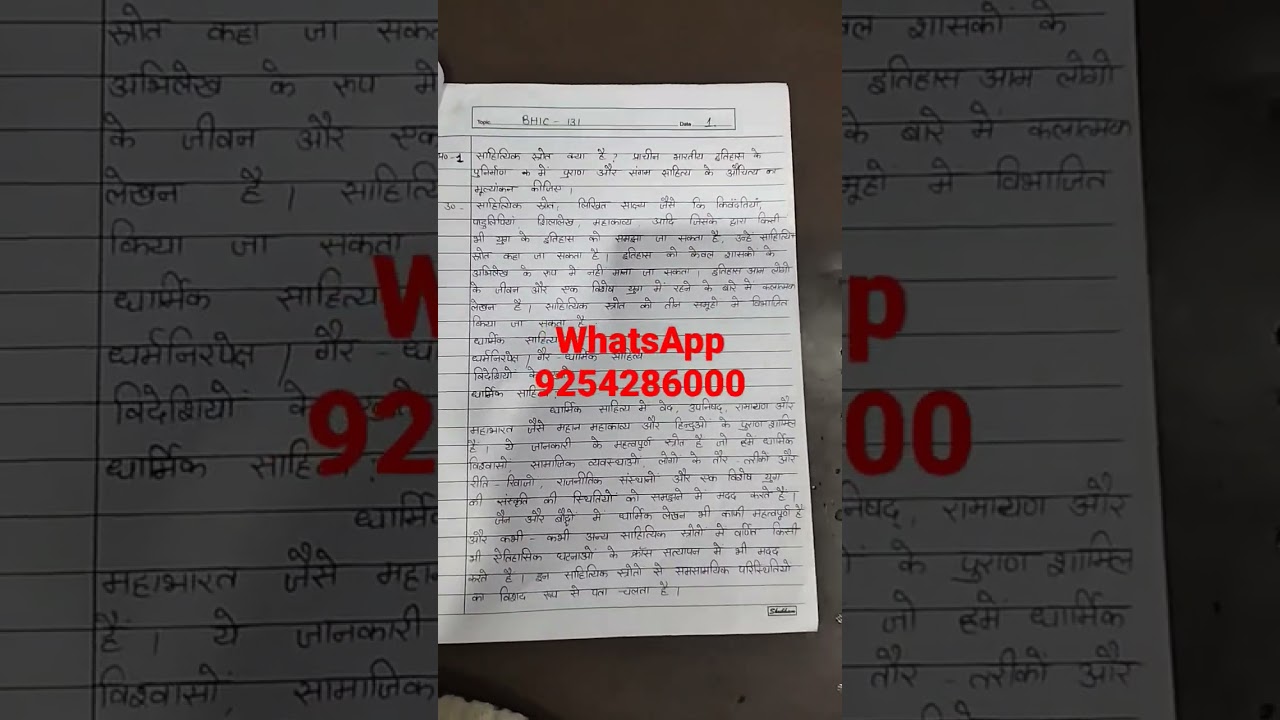 Topic BHIC - 131 Date 1
प्र०-1 साहित्यिक स्त्रोत क्या है ? प्राचीन भारतीय इतिहास के
पुनिर्माण क में पुराण और संगम साहित्य के औचित्य का
मूल्यांकन कीजिए ।
उ० - साहित्यिक स्त्रोत, लिखित साक्ष्य जैसे कि किवंदतियां,
पाडुलिपियां शिलालेख, महाकाव्य आदि जिसके द्वारा किसी
भी युग के इतिहास को समझा जा सकता है, उन्हें साहित्यि
स्त्रोत कहा जा सकता है । इतिहास को केवल शासकों के
अभिलेख के रूप मे नही माना जा सकता । इतिहास आम लोगो
के जीवन और एक विशेष युग में रहने के बारे में कलात्मक
लेखन है । साहित्यिक स्त्रोत को तीन समूहो मे विभाजित
किया जा सकता है
धार्मिक साहित्य
धर्मनिरपेक्ष / गैर - धार्मिक साहित्य
विदेशियों के
धार्मिक साहि
WhatsApp
9254286000
धार्मिक साहित्य में वेद, उपनिषद, रामायण और
महाभारत जैसे महान महाकाव्य और हिन्दुओं के पुराण शामिल
हैं । ये जानकारी के महत्वपूर्ण स्त्रोत है जो हमें धार्मिक
विश्वासों, सामाजिक व्यवस्थाओं, लोगों के तौर - तरीकों और
रीति - रिवाजो, राजनीतिक संस्थानों और एक विशेष युग
की संस्कृति की स्थितियो को समझने में मदद करते है ।
जैन और बौद्धों में धार्मिक लेखन भी काफी महत्वपूर्ण है
और कभी - कभी अन्य साहित्यिक स्त्रोतों में वर्णित किसी
भी ऐतिहासिक घटनाओं के क्रॉस सत्यापन में भी मदद
करते है । इन साहित्यिक स्त्रोतो से समसामयिक परिस्थितियो
का विशद रूप से पता चलता है ।
Shubham